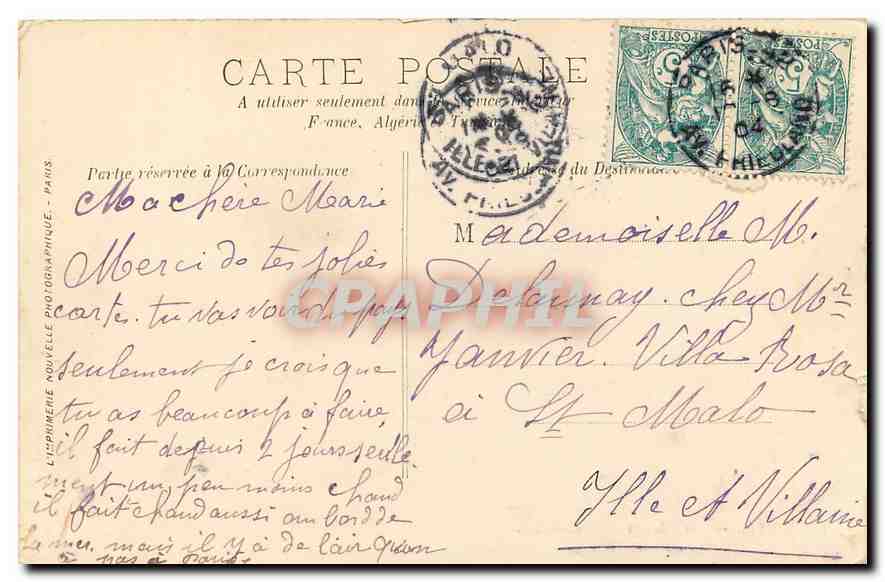 CARTE POSTALE
A utiliser seulement dans le Service Intérieur
France, Algérie, Tunisie
Partie réservée à la Correspondance
Ma chère Marie
Merci de tes jolies
cartes. tu vas voir du pays
seulement je crois que
tu as beaucoup à faire
il fait depuis 2 jours seule
ment un peu moins chaud
il fait chaud aussi au bord de
la mer. mais il y a de l'air qu'on
a pas à Paris.
Adresse du Destinataire
Mademoiselle M.
Delaunay. chez Mr
Janvier. Villa Rosa
à St Malo
Ille et Villaine
L'IMPRIMERIE NOUVELLE PHOTOGRAPHIQUE. - PARIS.
POSTES
5
POSTES
5
PARIS
15
02
AV. FRIEDLAND
PARIS
ILLE
AV.
CPRAPHIL